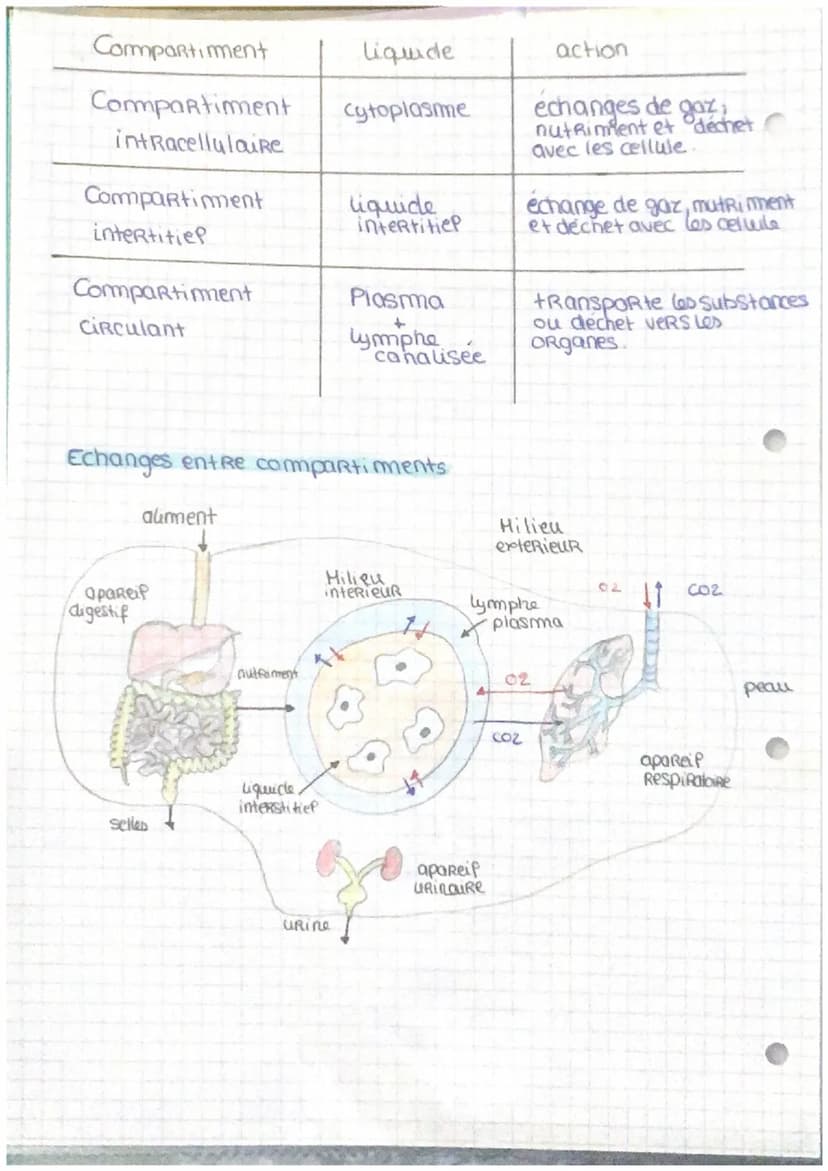 Compartiment liquide action
Compartiment cytoplasme échanges de gaz,
intracellulaire nutriment et déchet
avec les cellule.
Compartiment liquide échange de gaz, nutriment
intertitiel intertitiel et déchet avec les cellule
Compartiment Plasma transporte les substances
circulant + ou déchet vers les
lymphe organes.
canalisée
Echanges entre compartiments
aliment
Milieu
exterieur
apareil
digestif
Milieu
interieur
O2 CO2
lymphe
plasma
nutriment
O2
peau
CO2
apareil
respiratoire
liquide
interstitiel
selles
apareil
urinaire
urine